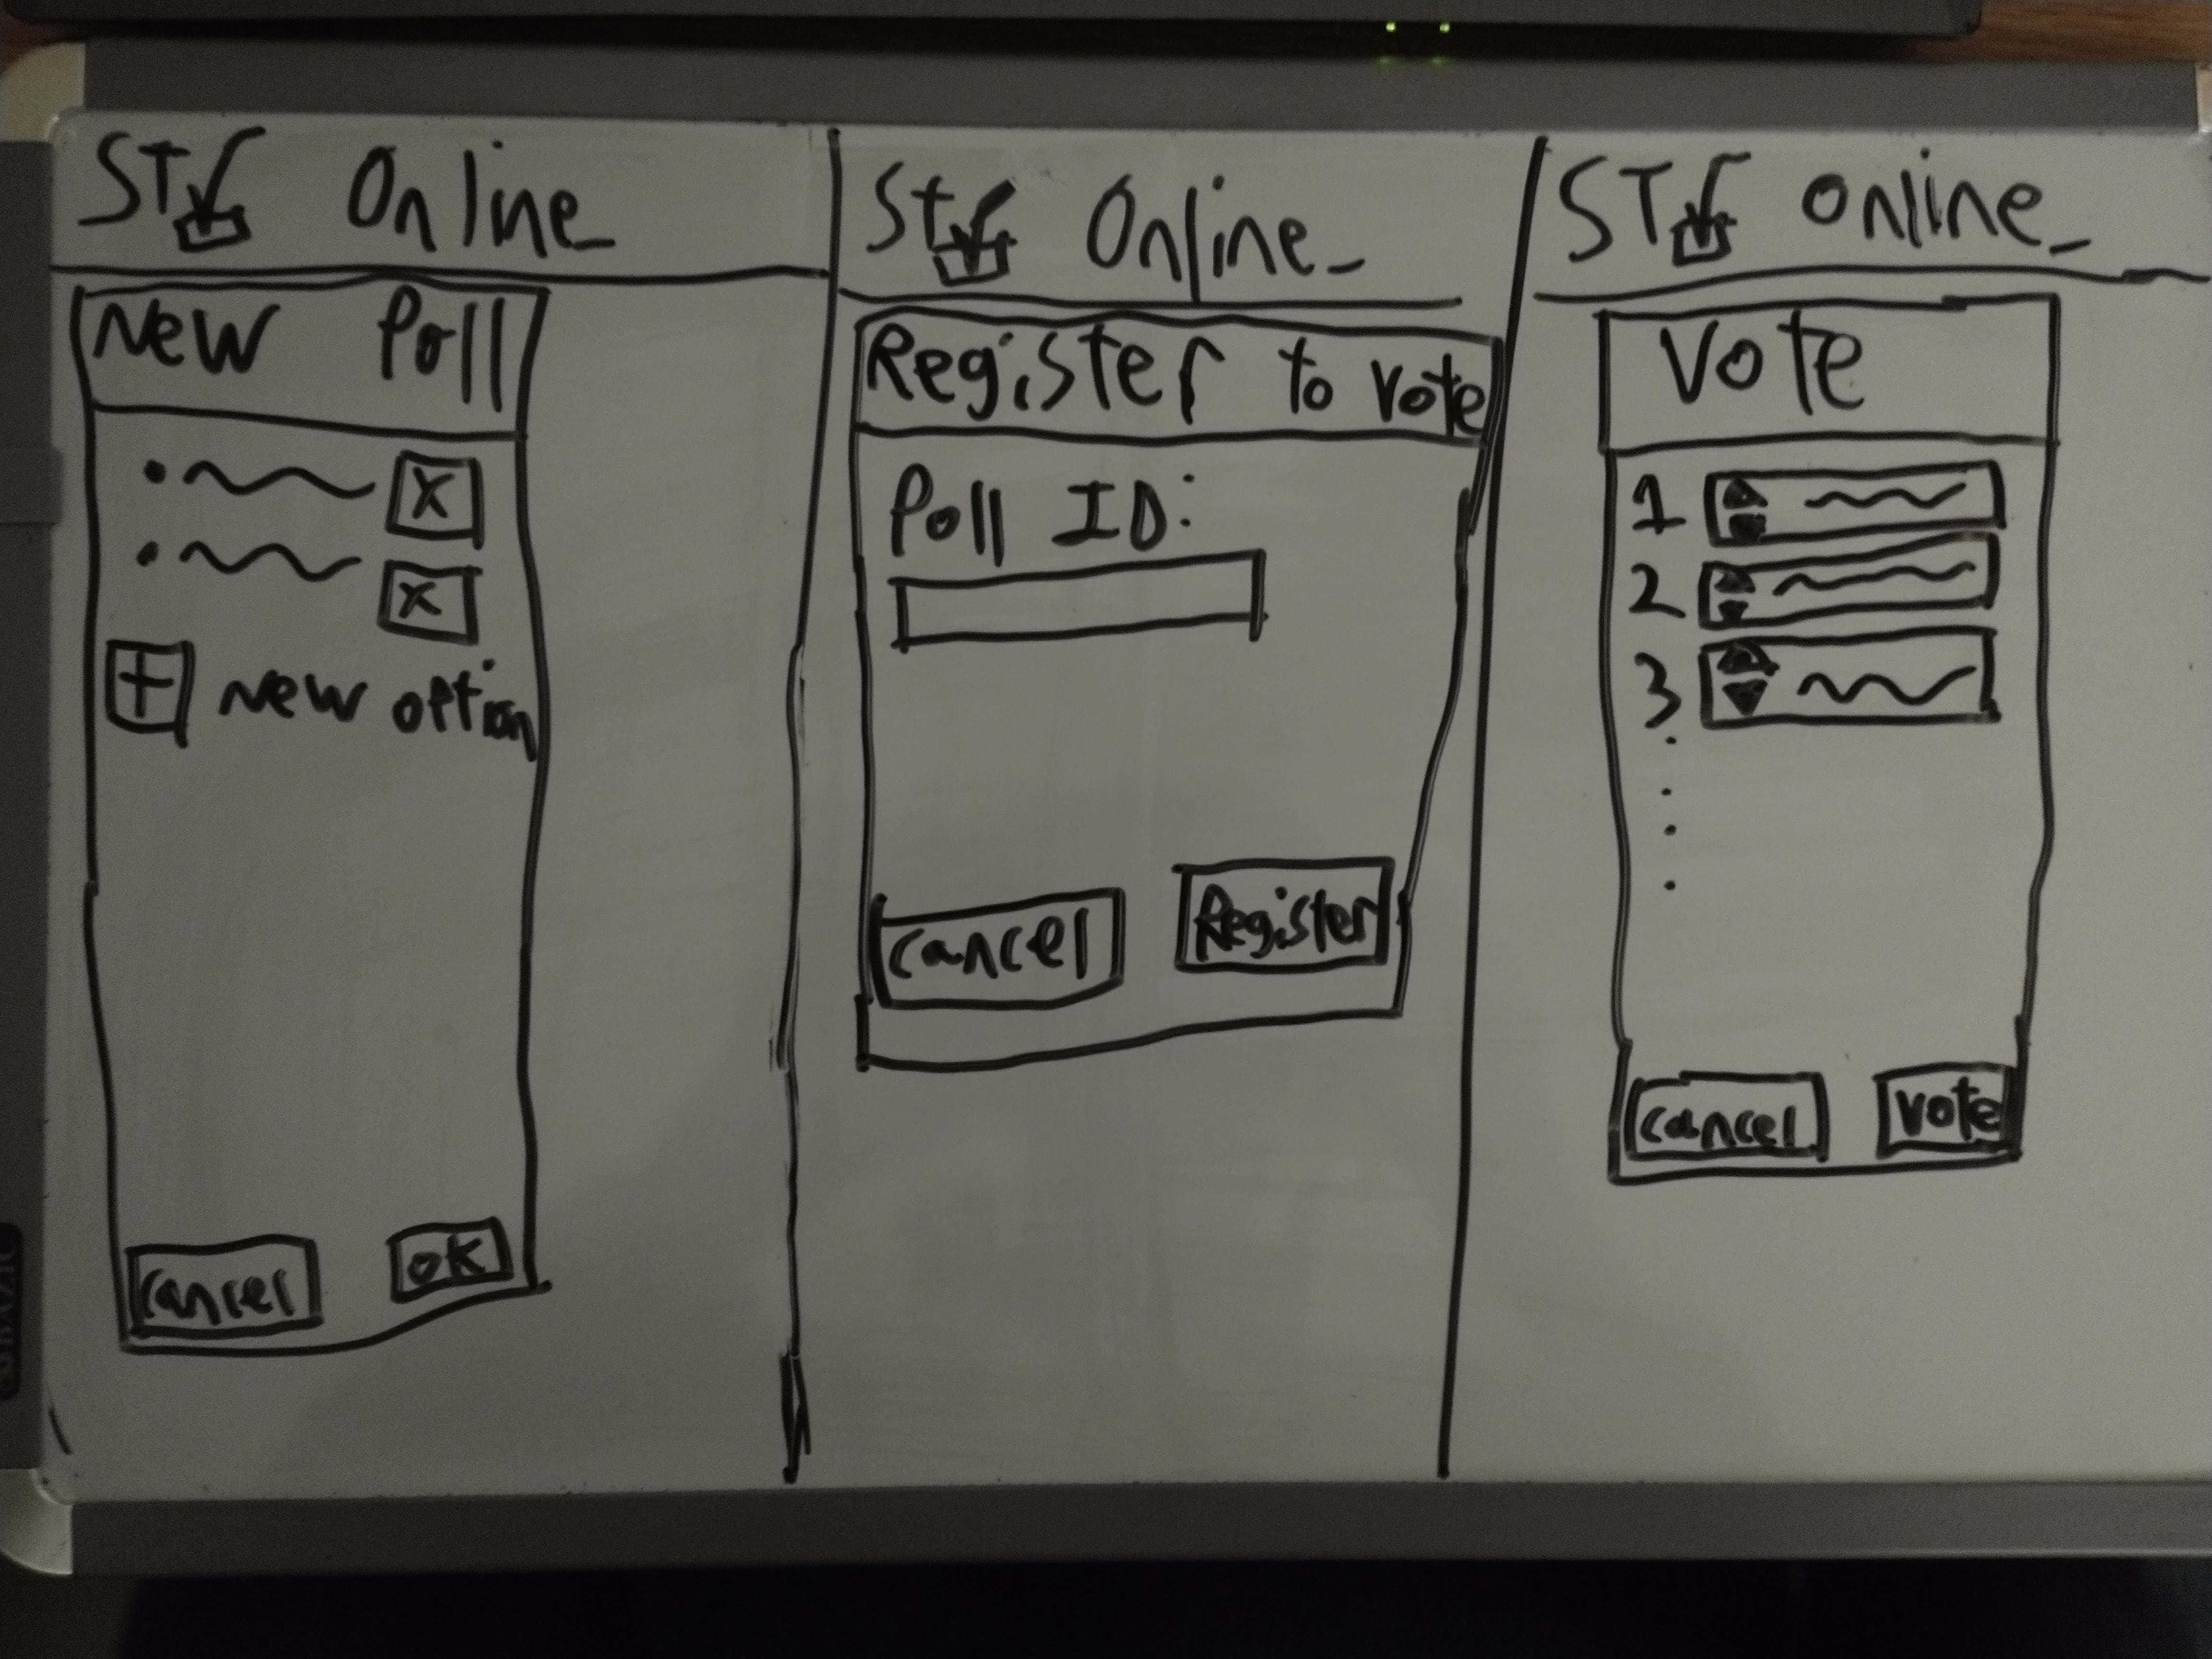 STV Online_
New Poll
X
X
+ New option
Cancel OK
StV Online_
Register to vote
Poll ID:
Cancel Register
STV Online_
Vote
1
2
3
Cancel Vote